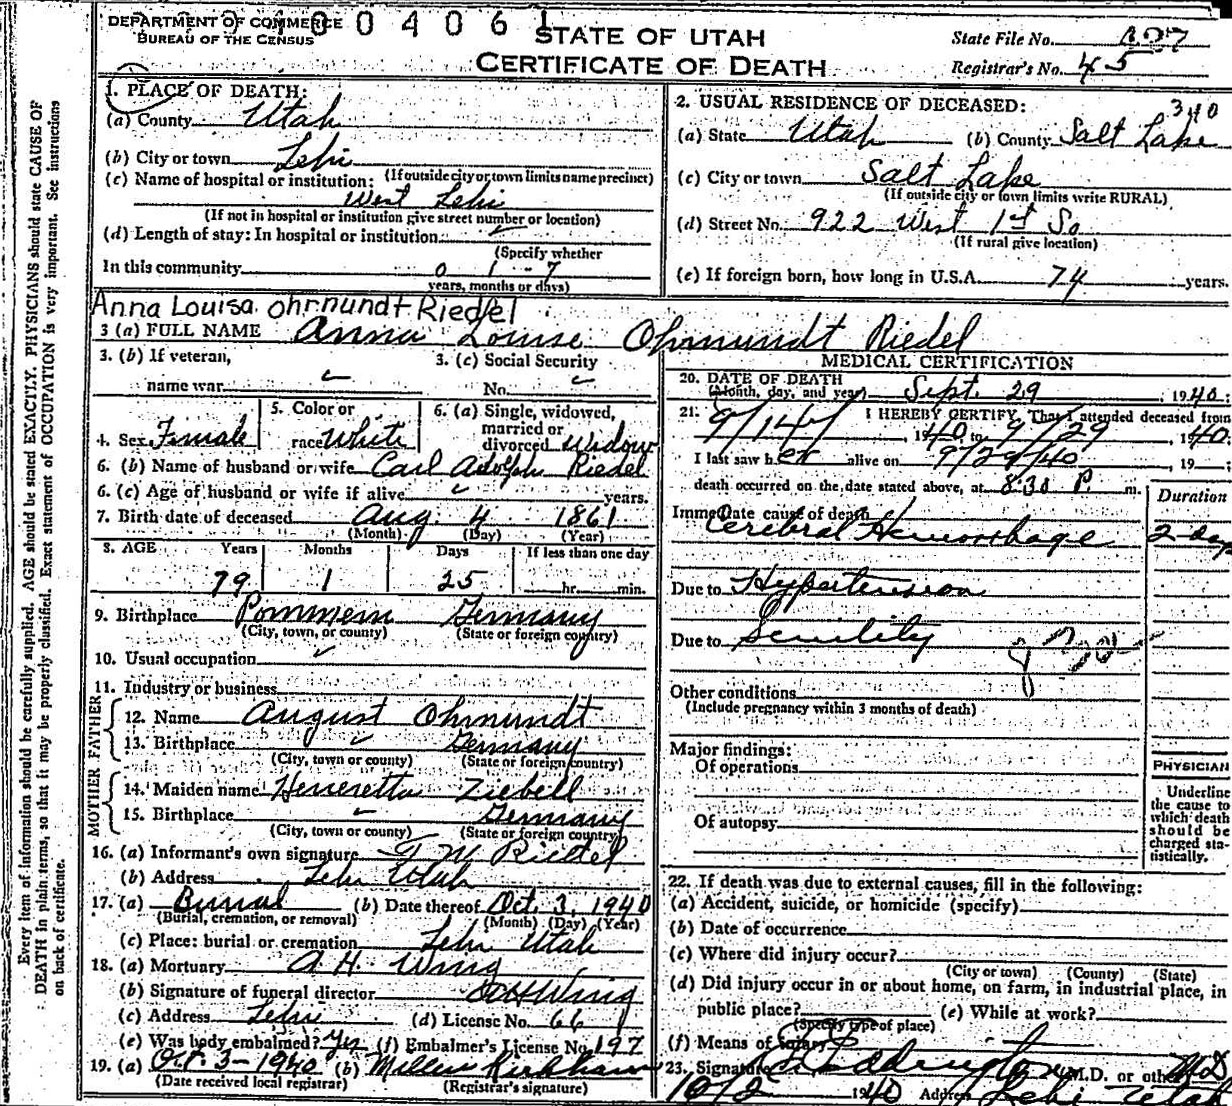 DEPARTMENT OF COMMERCE
BUREAU OF THE CENSUS
004061
STATE OF UTAH
CERTIFICATE OF DEATH
State File No.
Registrar's No. 45
1. PLACE OF DEATH:
(a) County Utah
(b) City or town Lehi
(If outside city or town limits name precinct)
(c) Name of hospital or institution:
West Lehi
(If not in hospital or institution give street number or location)
(d) Length of stay: In hospital or institution
(Specify whether
In this community 0 1 - 7
years, months or days)
2. USUAL RESIDENCE OF DECEASED:
(a) State Utah (b) County Salt Lake
(c) City or town Salt Lake
(If outside city or town limits write RURAL)
(d) Street No. 922 West 1st So
(If rural give location)
(e) If foreign born, how long in U.S.A. 74 years.
Anna Louisa Ohrmundt Riedel
3 (a) FULL NAME Anna Louise Ohrmundt Riedel
3. (b) If veteran, 3. (c) Social Security
name war No.
4. Sex Female 5. Color or race White 6. (a) Single, widowed, married or divorced Widow
6. (b) Name of husband or wife Carl Adolph Riedel
6. (c) Age of husband or wife if alive years.
7. Birth date of deceased Aug. 4 1861
(Month) (Day) (Year)
8. AGE Years Months Days If less than one day
79 1 25 hr. min.
9. Birthplace Pommern Germany
(City, town, or county) (State or foreign country)
10. Usual occupation
11. Industry or business
FATHER
12. Name August Ohrmundt
13. Birthplace Germany
(City, town or county) (State or foreign country)
MOTHER
14. Maiden name Heneretta Ziebell
15. Birthplace Germany
(City, town or county) (State or foreign country)
16. (a) Informant's own signature Riedel
(b) Address Lehi Utah
17. (a) Burial (b) Date thereof Oct. 3, 1940
(Burial, cremation, or removal) (Month) (Day) (Year)
(c) Place: burial or cremation Lehi Utah
18. (a) Mortuary A. H. Wing
(b) Signature of funeral director Wing
(c) Address Lehi (d) License No. 66
(e) Was body embalmed? Yes (f) Embalmer's License No. 197
19. (a) Oct. 3 - 1940 (b) Kirkham
(Date received local registrar) (Registrar's signature)
MEDICAL CERTIFICATION
20. DATE OF DEATH
(Month, day, and year) Sept. 29, 1940;
21. I HEREBY CERTIFY, That I attended deceased from
9/14, 1940 to 9/29, 1940.
I last saw her alive on 9/29/40, 19 ;
death occurred on the date stated above, at 8:30 P. m.
Duration
Immediate cause of death
Cerebral Hemorrhage 2 days
Due to Hypertension
Due to Senility
Other conditions
(Include pregnancy within 3 months of death)
Major findings:
Of operations
Of autopsy
PHYSICIAN
Underline
the cause to
which death
should be
charged sta-
tistically.
22. If death was due to external causes, fill in the following:
(a) Accident, suicide, or homicide (specify)
(b) Date of occurrence
(c) Where did injury occur?
(City or town) (County) (State)
(d) Did injury occur in or about home, on farm, in industrial place, in
public place? (e) While at work?
(Specify type of place)
(f) Means of injury
23. Signature Eddington M.D. or other MD
10/2 1940 Address Lehi Utah
Every item of information should be carefully supplied. AGE should be stated EXACTLY. PHYSICIANS should state CAUSE OF
DEATH in plain terms, so that it may be properly classified. Exact statement of OCCUPATION is very important. See instructions
on back of certificate.